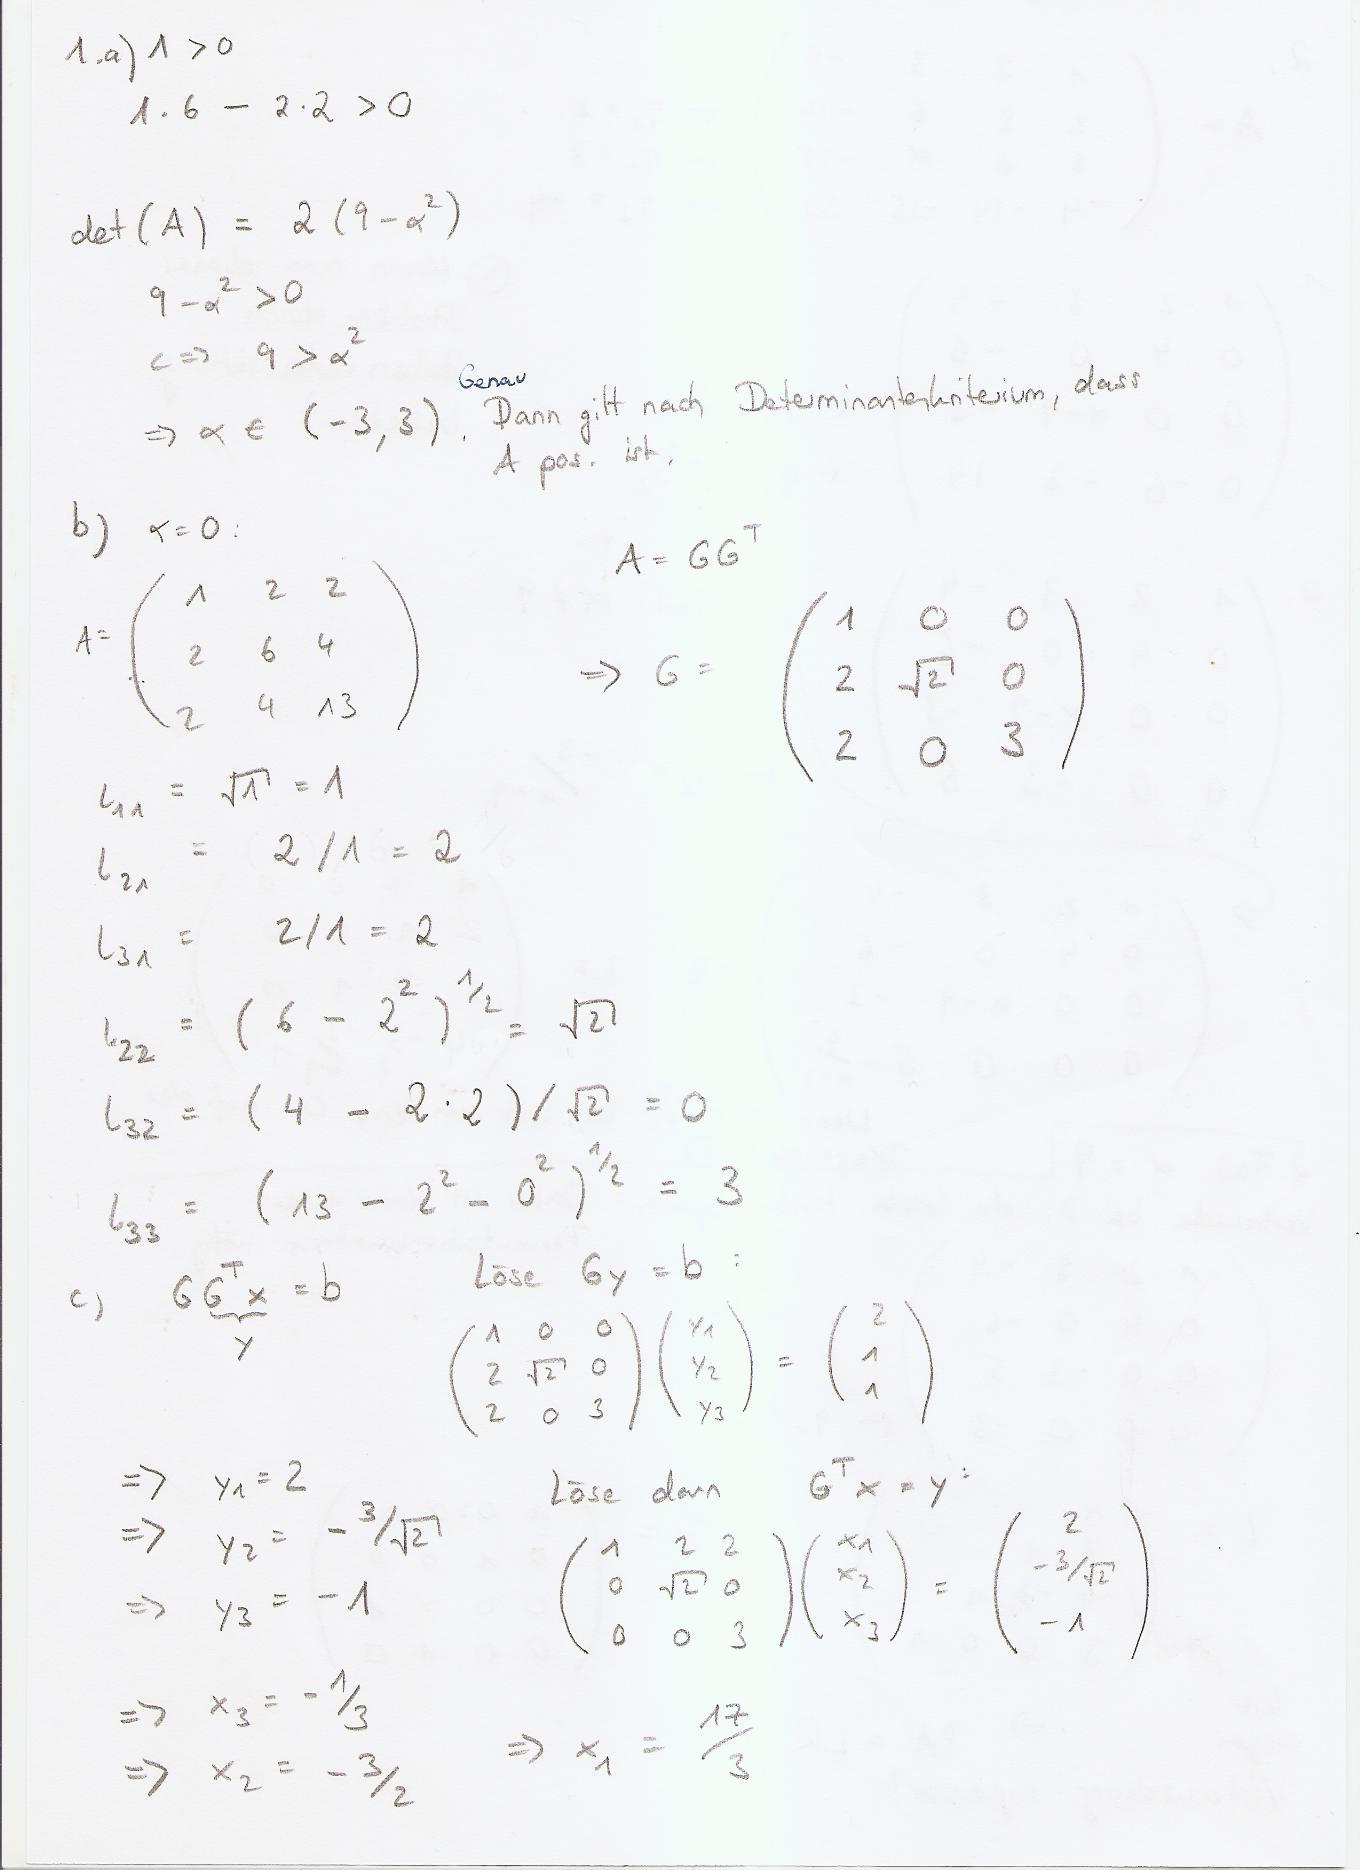 1.a) 1 > 0
1·6 − 2·2 > 0
det(A) = 2(9−α²)
9−α² > 0
<=> 9 > α²
=> α ∈ (−3,3). Genau Dann gilt nach Determinantenkriterium, dass
A pos. ist.
b) α=0: A = GG^T
A = ( 1 2 2
2 6 4
2 4 13 )
=> G = ( 1 0 0
2 √2 0
2 0 3 )
l₁₁ = √1 = 1
l₂₁ = 2/1 = 2
l₃₁ = 2/1 = 2
l₂₂ = (6 − 2²)^1/2 = √2
l₃₂ = (4 − 2·2)/√2 = 0
l₃₃ = (13 − 2² − 0²)^1/2 = 3
c) GG^T x = b Löse Gy = b:
y
( 1 0 0 ) ( y₁ ) = ( 2 )
( 2 √2 0 ) ( y₂ ) ( 1 )
( 2 0 3 ) ( y₃ ) ( 1 )
=> y₁ = 2 Löse dann G^T x = y:
=> y₂ = −3/√2
=> y₃ = −1
( 1 2 2 ) ( x₁ ) = ( 2 )
( 0 √2 0 ) ( x₂ ) ( −3/√2 )
( 0 0 3 ) ( x₃ ) ( −1 )
=> x₃ = −1/3
=> x₂ = −3/2 => x₁ = 17/3